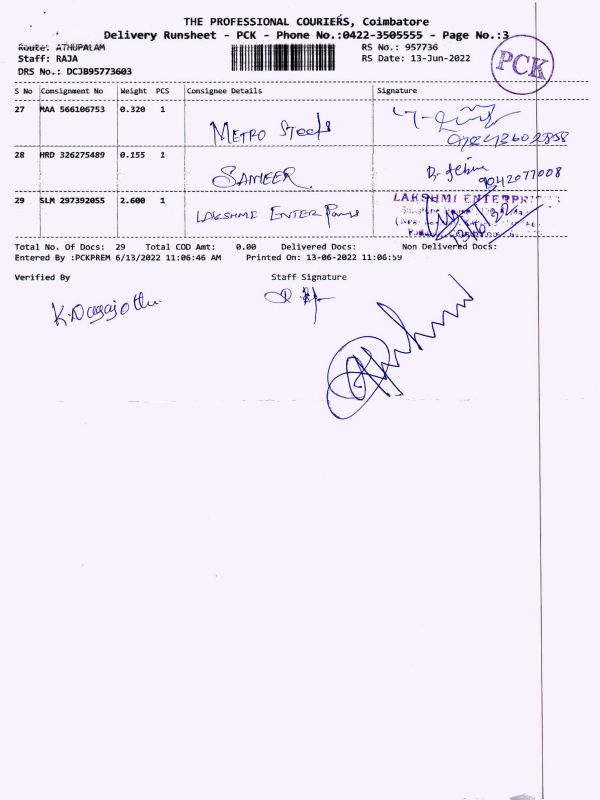 THE PROFESSIONAL COURIERS, Coimbatore
Delivery Runsheet - PCK - Phone No.:0422-3505555 - Page No.:3
Route: ATHUPALAM
RS No.: 957736
Staff: RAJA
RS Date: 13-Jun-2022
DRS No.: DCJB95773603
PCK
S No Consignment No Weight PCS Consignee Details Signature
27 MAA 566106753 0.320 1 METRO Steels
28 HRD 326275489 0.155 1 SAMEER 9042077008
29 SLM 297392055 2.600 1 LAKSHMI ENTER
LAKSHMI ENTERPRI
Total No. Of Docs: 29 Total COD Amt: 0.00 Delivered Docs: Non Delivered Docs:
Entered By :PCKPREM 6/13/2022 11:06:46 AM Printed On: 13-06-2022 11:06:59
Verified By Staff Signature